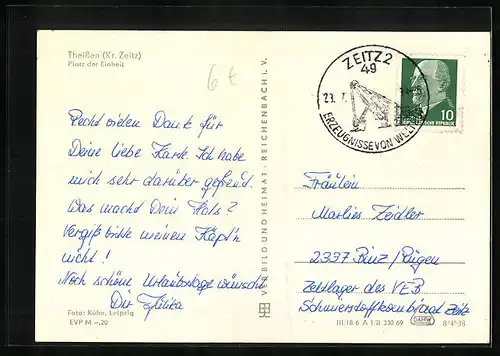 Theißen (Kr. Zeitz)
Platz der Einheit
6 €
Recht vielen Dank für
Deine liebe Karte. Ich habe
mich sehr darüber gefreut.
Was macht Dein Hals?
Vergiß bitte meinen Käpt'n
nicht!
Noch schöne Urlaubstage wünscht
Dir
Foto: Kühn, Leipzig
EVP M –,20
VEB BILD UND HEIMAT · REICHENBACH i. V.
ZEITZ 2
49
23. 7.
ERZEUGNISSE VON
10
Fräulein
Marlies Zeidler
2337 Binz / Rügen
Zeltlager des VEB
Schmierstoffkombinat Zeitz
III/18 6 A 1/B 330 69
8/4138